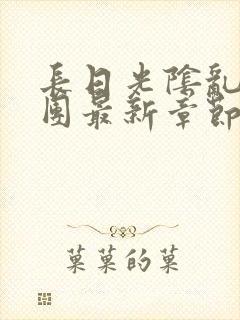 長日光陰亂
團最新章節
菓菓的菓